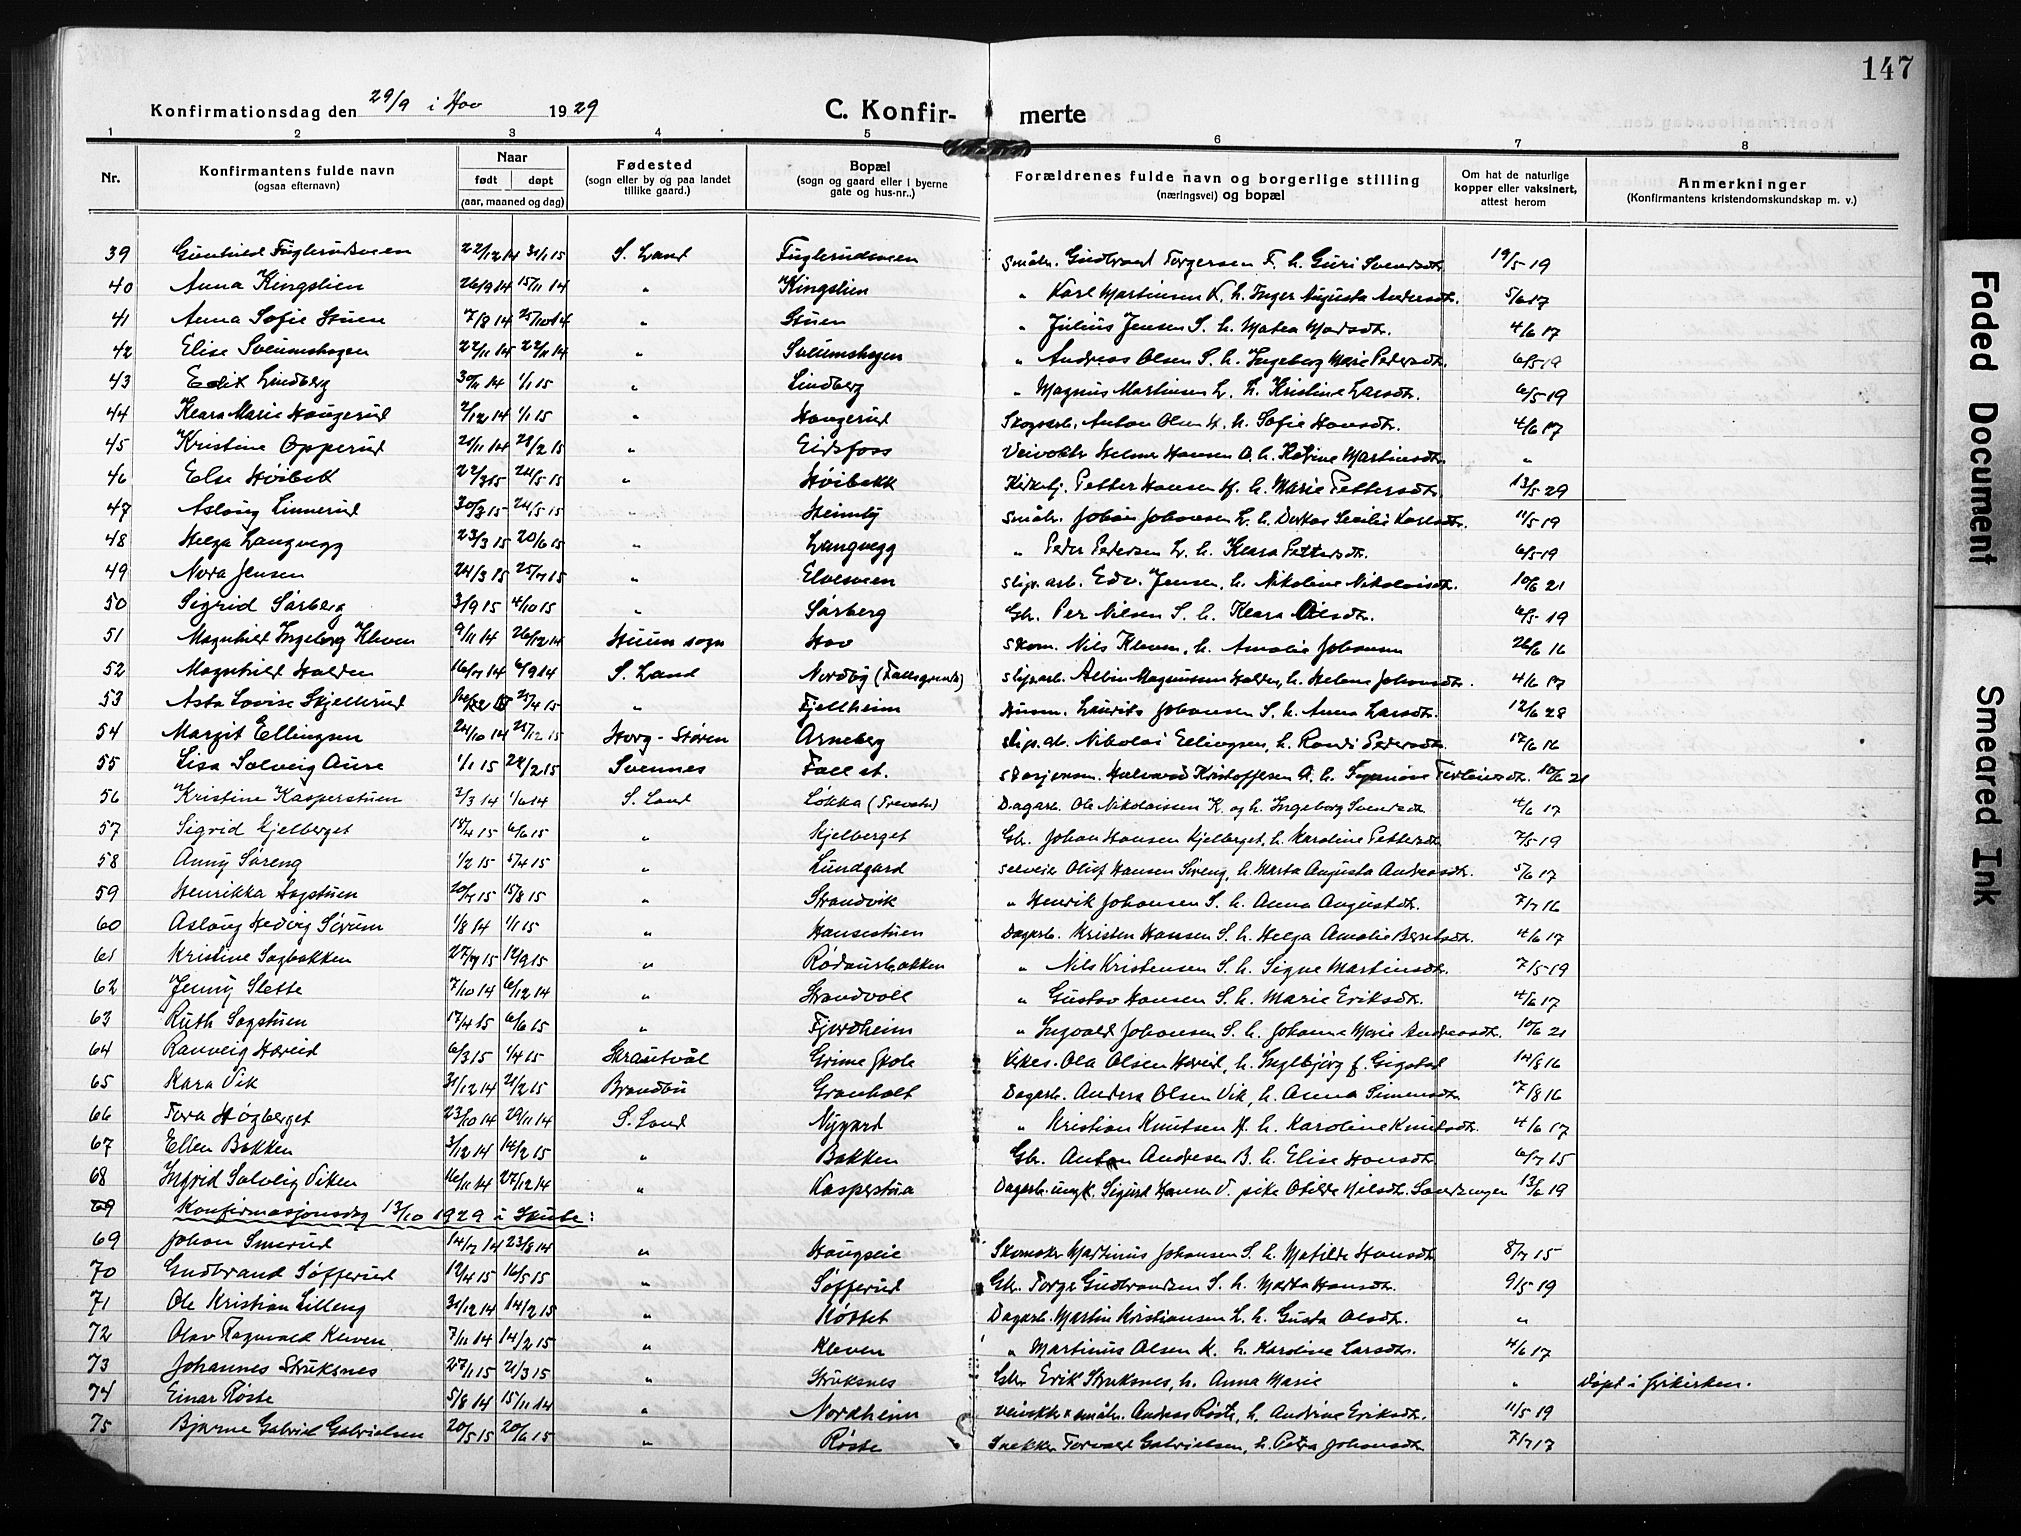 147
Konfirmationsdag den 29/9 i Hov 1929
C. Konfirmerte
1 2 3 4 5 6 7 8
Nr.
Konfirmantens fulde navn
(ogsaa efternavn)
Naar
født døpt
(aar, maaned og dag)
Fødested
(sogn eller by og paa landet
tillike gaard.)
Bopæl
(sogn og gaard eller i byerne
gate og hus-nr..)
Forældrenes fulde navn og borgerlige stilling
(næringsvei) og bopæl
Om hat de naturlige
kopper eller vaksinert,
attest herom
Anmerkninger
(Konfirmantens kristendomskundskap m. v.)
39 Gunhild Fuglerudsveen 22/12 14 31/1 15 S. Land Fuglerudsveen småbr. Gudbrand Torgersen F. h. Guri Svendsdtr. 19/5 19
40 Anna Kingslien 26/9 14 15/11 14 " Kingslien " Karl Martinsen K. h. Inger Augusta Andersdtr. 5/6 17
41 Anna Sofie Stuen 7/8 14 25/10 14 " Stuen " Julius Jensen S. h. Matea Madsdtr. 4/6 17
42 Elise Sveumshagen 22/11 14 " Sveumshagen " Andreas Olsen S. h. Ingeborg Marie Pedersdtr. 6/5 19
43 Edit Lindberg 30/11 14 1/1 15 " Lindberg " Magnus Martinsen L. h. Kristine Larsdtr. 6/5 19
44 Klara Marie Haugerud 2/12 14 1/1 15 " Haugerud Skogsarb. Anton Olsen H. h. Sofie Hansdtr. 4/6 17
45 Kristine Opperud 21/11 14 21/2 15 " Eidsfoss Veivokter Helmer Hansen O. h. Katrine Martinsdtr. "
46 Else Høibakk 22/3 15 24/5 15 " Høibakk Kirketj. Petter Hansen H. h. Marie Pettersdtr. 13/5 29
47 Aslaug Linnerud 30/3 15 24/5 15 " Heimly småbr. Johan Johansen L. h. Dorkas Cecilie Karlsdtr. 11/5 19
48 Helga Langvegg 23/3 15 20/6 15 " Langvegg " Peder Pedersen L. h. Klara Pettersdtr. 6/5 19
49 Nora Jensen 24/3 15 25/7 15 " Elvesveen slip.arb. Edv. Jensen, h. Nikoline Nikolaisdtr. 10/6 21
50 Sigrid Sørberg 3/9 15 4/10 15 " Sørberg Gbr. Per Nilsen S. h. Klara Olsdtr. 6/5 19
51 Magnhild Ingeborg Kleven 9/11 14 26/12 14 Huun sogn Hov skom. Nils Kleven, h. Amalie Johansen 26/6 16
52 Magnhild Holden 16/7 14 6/9 14 S. Land Nordby (Fallsgrenda) sliparb. Albin Magnussen Holden, h. Helene Johansdtr. 4/6 17
53 Asta Lovise Skjellerud 25/4 15 " Fjellheim Husm. Laurits Johansen S. h. Anna Larsdtr. 12/6 28
54 Margit Ellingsen 24/10 14 25/12 15 Horg - Støren Arneberg slip.arb. Nikolai Ellingsen, h. Randi Pedersdtr. 17/6 16
55 Lisa Solveig Aure 1/1 15 28/2 15 Svennes Fall st. stasjonsm. Halvard Kristoffersen A. h. 10/6 21
56 Kristine Kasperstuen 2/3 14 1/6 14 S. Land Løkka (Trevatn) Dagarb. Ole Nikolaisen K. og h. Ingeborg Svendsdtr. 4/6 17
57 Sigrid Kjelberget 18/4 15 6/6 15 " Kjelberget Gbr. Johan Hansen Kjelberget, h. Karoline Pettersdtr. 7/5 19
58 Anny Søreng 1/2 15 5/4 15 " Lundgård selveier Oluf Hansen Søreng, h. Marta Augusta Andreasdtr. 5/6 17
59 Henrikka Sagstuen 20/7 15 15/8 15 " Strandvik " Henrik Johansen S. h. Anna Augustsdtr. 7/7 16
60 Aslaug Hedvig Sørum 1/8 14 1/1 15 " Hansestuen Dagarb. Kristen Hansen S. h. Helga Amalie Berntsdtr. 4/6 17
61 Kristine Sagbakken 27/7 15 12/9 15 " Rødausbakken " Nils Kristensen S. h. Signe Martinsdtr. 7/5 19
62 Jenny Slette 7/10 14 6/12 14 " Strandvoll " Gustav Hansen S. h. Marie Eriksdtr. 4/6 17
63 Ruth Sagstuen 17/4 15 6/6 15 " Fjordheim " Ingvald Johansen S. h. Johanne Marie Andreasdtr. 10/6 21
64 Ranveig Høveid 6/3 15 1/4 15 Skrautvål Grime skole Kirkes. Ola Olsen Høveid, h. Ingebjørg f. Gigstad 14/8 16
65 Kara Vik 31/12 14 21/2 15 Brandbu Granholt Dagarb. Anders Olsen Vik, h. Anna Simensdtr. 7/8 16
66 Tora Høgberget 23/10 14 29/11 14 S. Land Nygard " Kristian Knutsen H. h. Karoline Knutsdtr. 4/6 17
67 Ellen Bakken 3/12 14 14/2 15 " Bakken Gbr. Anton Andresen B. h. Elise Hansdtr. 6/7 15
68 Ingrid Solveig Viken 16/11 14 27/12 14 " Kasperstua Dagarb. ungk. Sigurd Hansen V. pike Otilde Nilsdtr. Sandsengen 13/6 19
69 Konfirmasjonsdag 13/10 1929 i Skute:
69 Johan Smerud 14/7 14 23/8 14 " Haugseie Skomaker Martinus Johansen S. h. Matilde Hansdtr. 8/7 15
70 Gudbrand Søfferud 12/4 15 16/5 15 " Søfferud Gbr. Torger Gudbrandsen S. h. Marta Hansdtr. 9/5 19
71 Ole Kristian Lilleng 31/12 14 14/2 15 " Røsset Dagarb. Martin Kristiansen L. h. Gusta Olsdtr. "
72 Olav Ragnvald Kleven 7/11 14 14/2 15 " Kleven " Martinus Olsen K. h. Karoline Larsdtr. 4/6 17
73 Johannes Struksnes 27/1 15 21/3 15 " Struksnes Gbr. Erik Struksnes, h. Anna Marie " Døpt i frikirken.
74 Einar Røste 5/8 14 15/11 14 " Nordheim veivokter & småbr. Andreas Røste, h. Andrine Eriksdtr. 11/5 19
75 Bjarne Gabriel Gabrielsen 20/5 15 20/6 15 " Røste Snekker Torvald Gabrielsen, h. Petra Johansdtr. 7/7 17
Faded Document
Smeared Ink